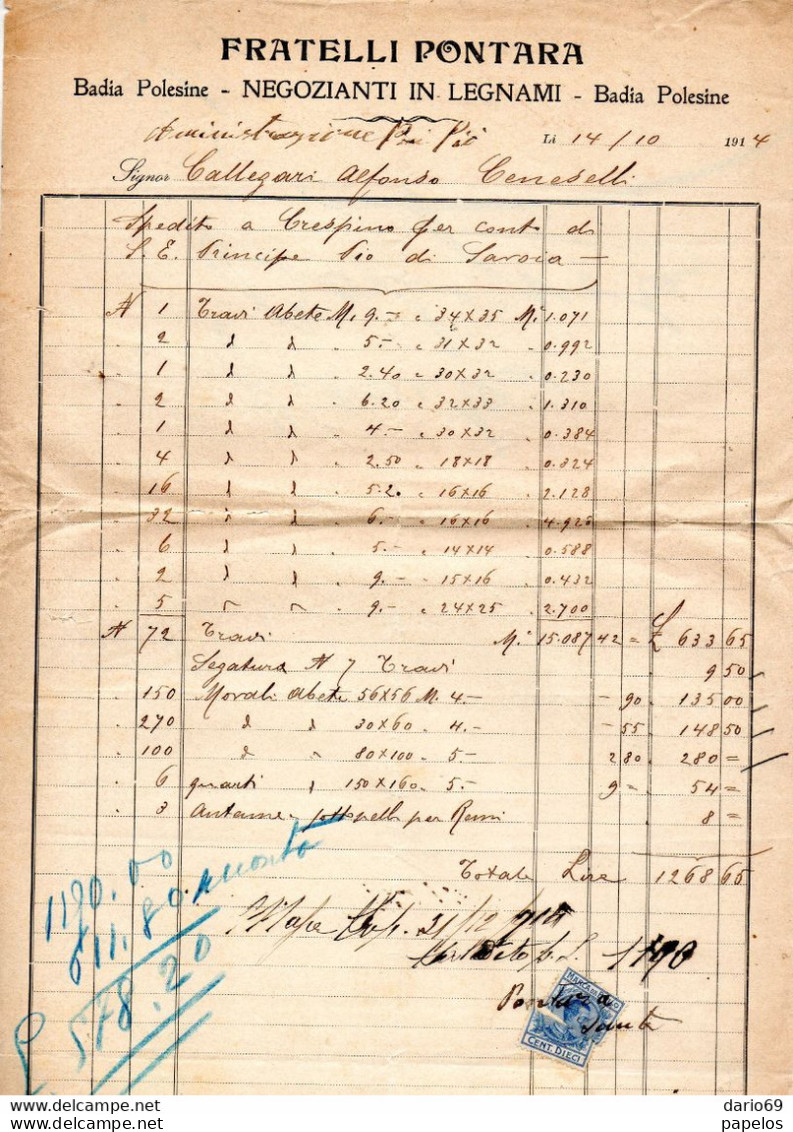 FRATELLI PONTARA
Badia Polesine - NEGOZIANTI IN LEGNAMI - Badia Polesine
Amministrazione Pri Pio Li 14/10 1914
Signor Callegari Alfonso Ceneselli
Spedito a Crespino per conto di
S. E. Principe Pio di Savoia —
N 1 Travi Abete M. 9.— " 34x35 M.c 1.071
" 2 " " " 5.— " 31x32 " 0.992
" 1 " " " 2.40 " 30x32 " 0.230
" 2 " " " 6.20 " 32x33 " 1.310
" 1 " " " 4.— " 30x32 " 0.384
" 4 " " " 2.50 " 18x18 " 0.324
" 16 " " " 5.20 " 16x16 " 2.128
" 32 " " " 6.— " 16x16 " 4.925
" 6 " " " 5.— " 14x14 " 0.588
" 2 " " " 9.— " 15x16 " 0.432
" 5 " " " 9.— " 24x25 " 2.700
N 72 Travi M.c 15.087 42 = £ 633 65
Segatura N 7 Travi 9 50
" 150 Morali Abete 56x56 M. 4.— — 90 " 135 00
" 270 " " 30x60 " 4.— — 55 " 148 50
" 100 " " 80x100 " 5.— 2 80 " 280 =
" 6 quarti " 150x160 " 5.— 9 = " 54 =
" 3 Antame per Remi " 8 =
Totale Lire 1268 65
1190.00
611.80 acconto
L. 578.20
21/12/914
1190
Pontara
Sante
MARCA DA BOLLO
CENT. DIECI
dario69
papelos